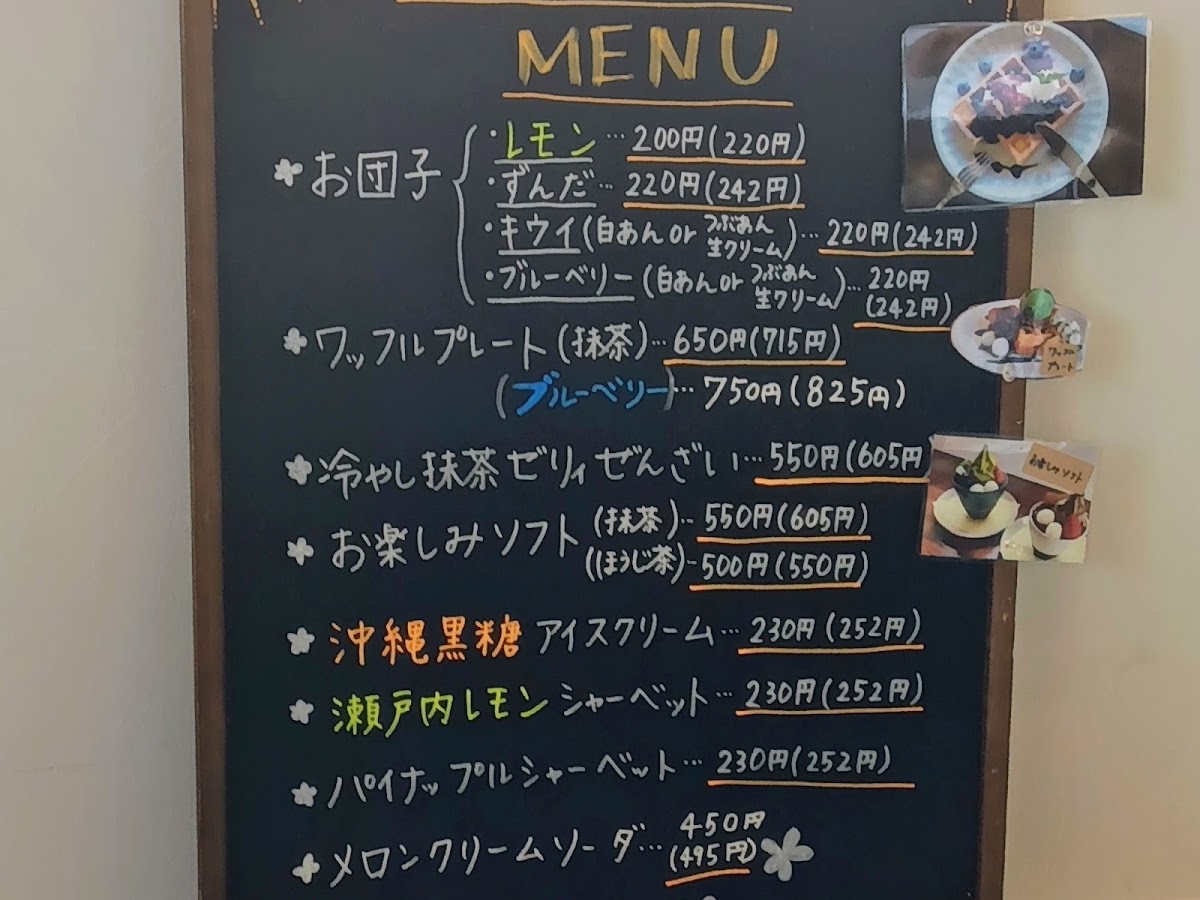 MENU
お団子
・レモン…200円(220円)
・ずんだ…220円(242円)
・キウイ(白あんor つぶあん 生クリーム)…220円(242円)
・ブルーベリー(白あんor つぶあん 生クリーム)…220円
(242円)
ワッフルプレート(抹茶)…650円(715円)
(ブルーベリー)…750円(825円)
ワッフル
プレート
冷やし抹茶ゼリィぜんざい…550円(605円
お楽しみソフト(抹茶)…550円(605円)
(ほうじ茶)…500円(550円)
お楽しみソフト
沖縄黒糖アイスクリーム…230円(252円)
瀬戸内レモンシャーベット…230円(252円)
パイナップルシャーベット…230円(252円)
メロンクリームソーダ…450円
(495円)